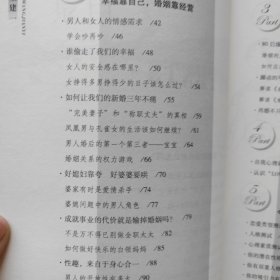 幸福靠自己，婚姻靠经营
• 男人和女人的情感需求 /42
学会吵西吵 /46
• 谁偷走了我们的幸福 /48
女人的安全感在哪里？ /50
女挣得多男挣得少的日子该怎么过？ /54
• 如何让我们的新婚三年不痛 /55
“完美妻子”和“称职丈夫”的真相 /59
凤凰男与孔雀女的生活该如何继续？ /61
男人婚后的第一个第三者——宝宝 /64
婚姻关系的权力游戏 /66
• 好媳妇靠夸 好婆婆要哄 /70
婆家有时是爱情杀手 /74
婆媳问题中的男人角色 /77
• 成就事业的代价就是输掉婚姻吗？ /79
不是万不得已别做全职太太 /82
如何做好快乐的出领妈妈 /85
• 性趣，来自于身心合一 /88
3
Part
4
Part
5
Part